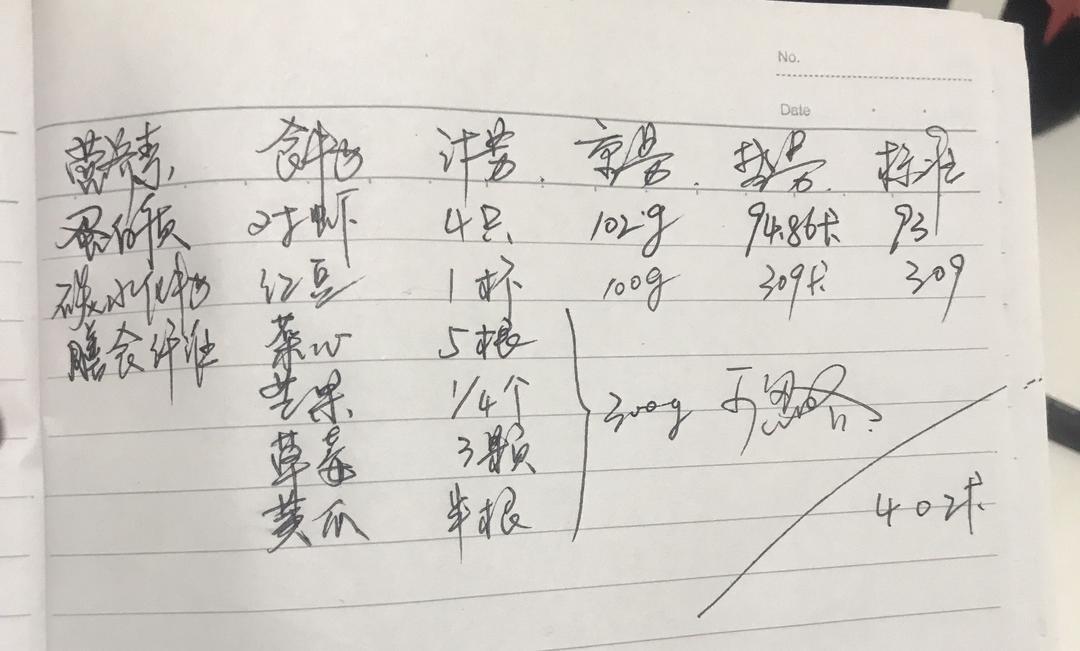 No.
Date
营养素 食物 计量 重量 热量 标准
蛋白质 对虾 4只 102g 94.86卡 93
碳水化物 红豆 1杯 100g 309卡 309
膳食纤维 菜心 5根
芒果 1/4个
300g 可忽略
草莓 3颗
黄瓜 半根
402卡